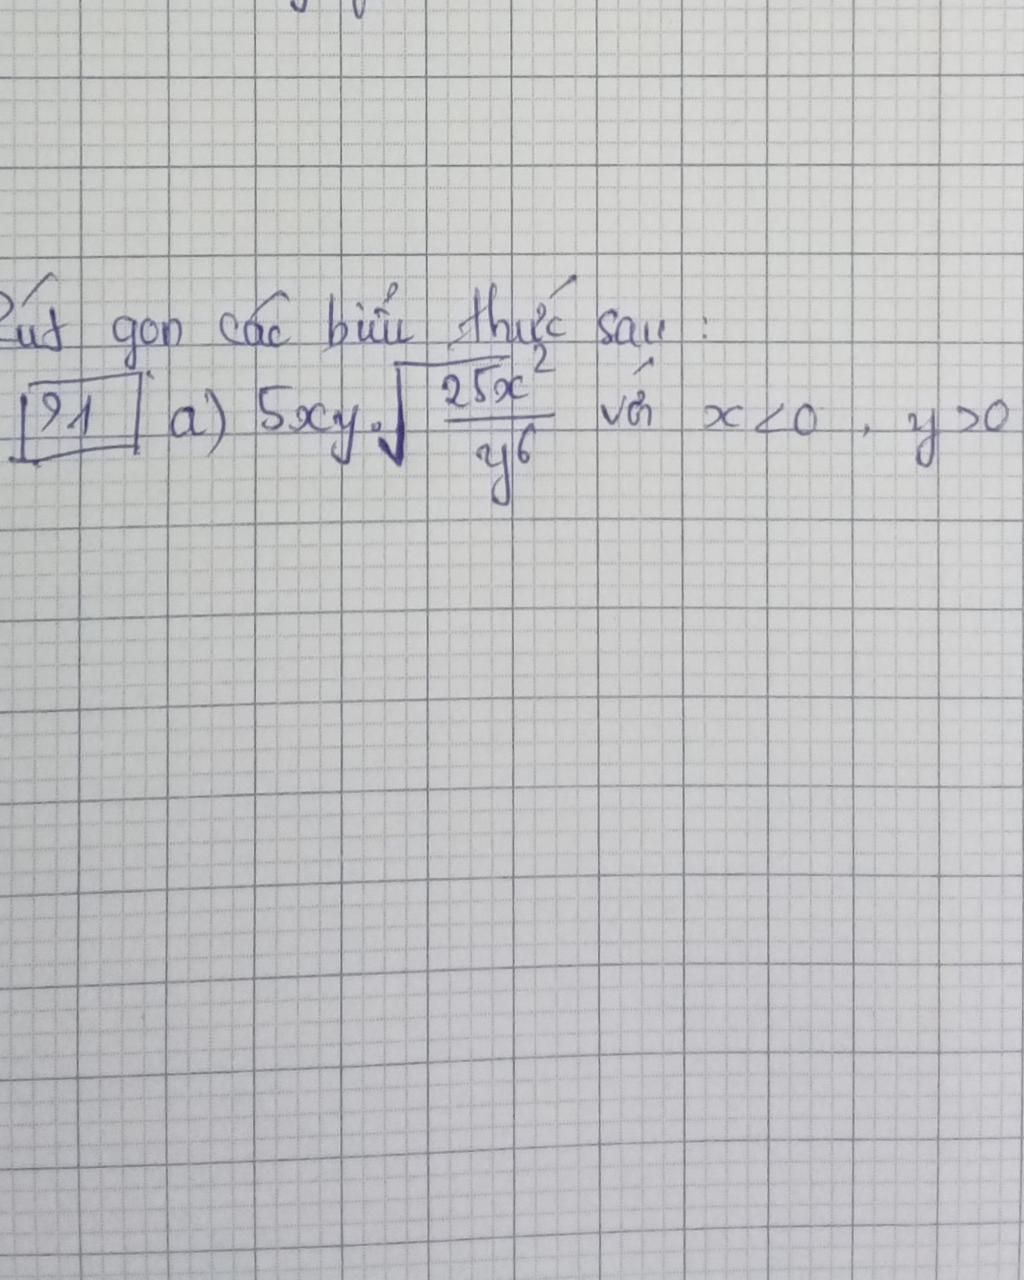 Rút gọn các biểu thức sau :
91 a) 5xy.√(25x²/y⁶) với x < 0 , y > 0